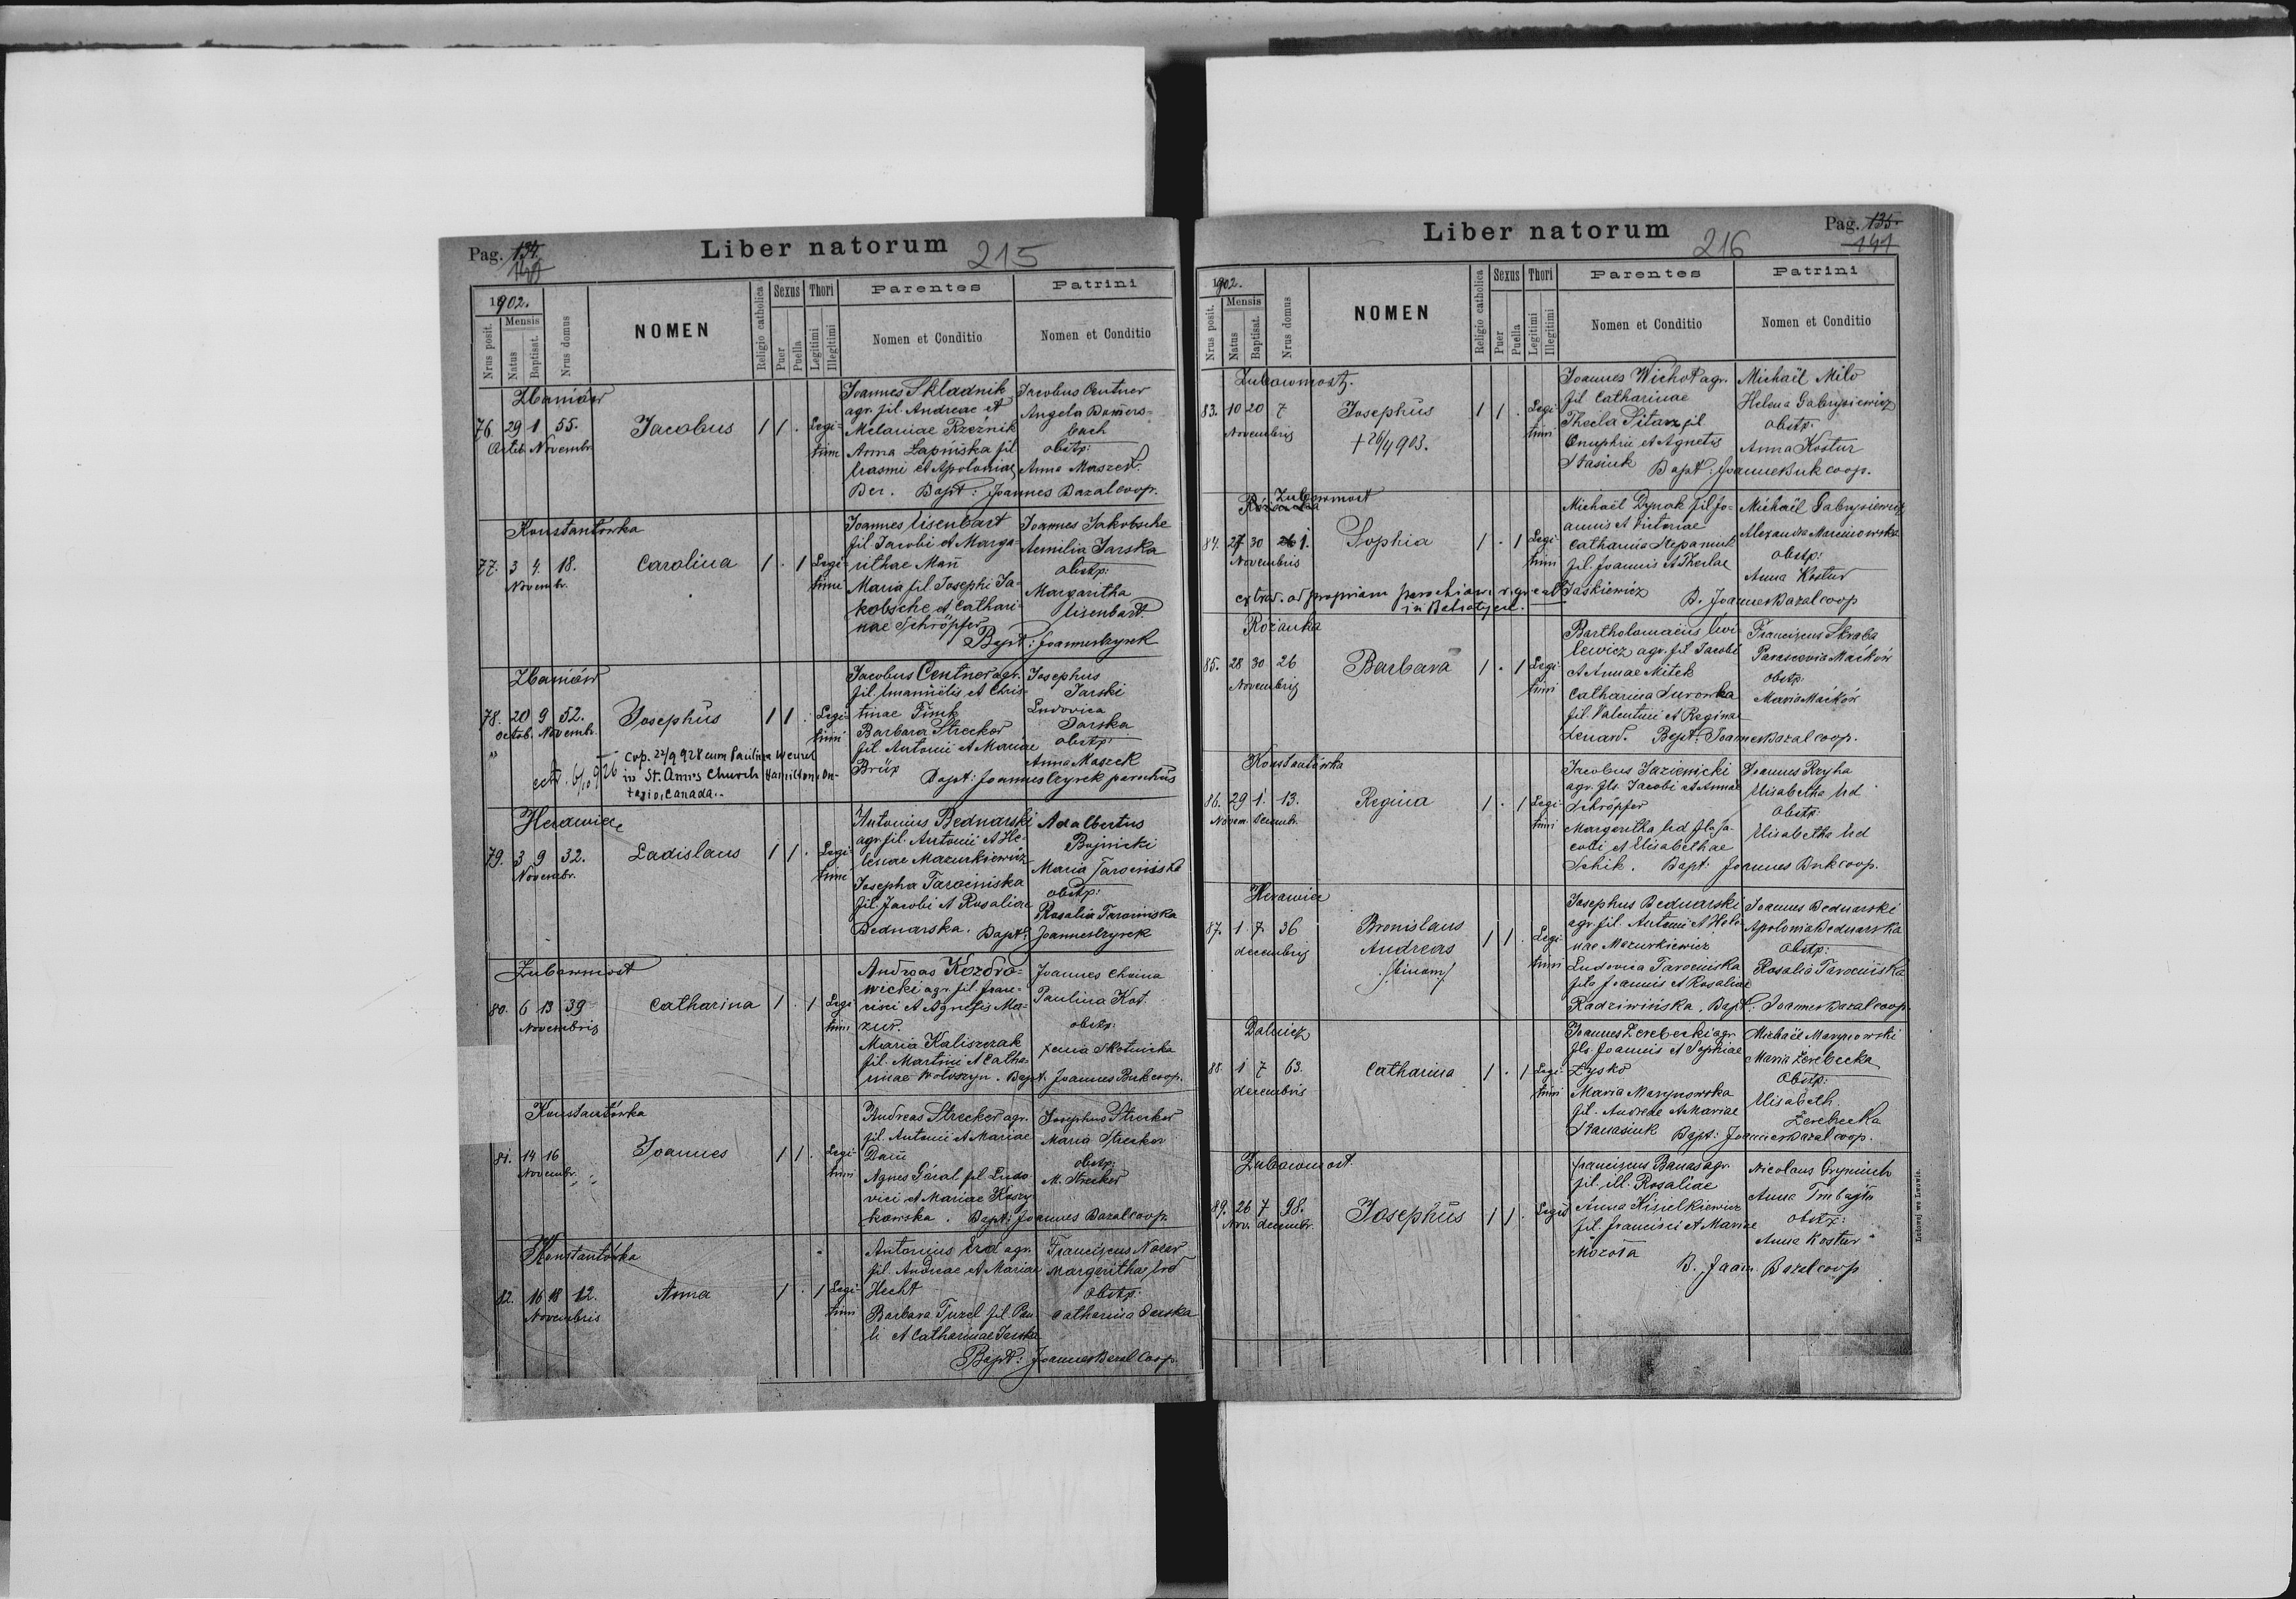 Pag. 134.
Liber natorum 215
1902.
Nrus posit.
Mensis
Natus
Baptisat.
Nrus domus
NOMEN
Religio catholica
Sexus
Puer
Puella
Thori
Legitimi
Illegitimi
Parentes
Nomen et Conditio
Patrini
Nomen et Conditio
Zbaniów
76. 29 1 55. Jacobus 1 1 . Legi-
Octob. Novembr. timi
Joannes Składnik
agr. fil. Andreae et
Melaniae Rzeźnik
Anna Łapińska fil.
et Apoloniae
Ber. Bapt: Joannes Bazal coop.
Jacobus Centner
Angela
bach
obstp:
Anna
Konstantówka
77. 3 4. 18. Carolina 1 . 1 Legi-
Novembr. timi
Joannes Eisenbart
fil. Jacobi et Marga-
rithae Mañ
Maria fil. Josephi Ja-
kobsche et Cathari-
nae Schröpfer
Bapt: Joannes Czyrek
Joannes Jakobsche
Aemilia Jarska
obstp:
Margaritha
Eisenbart.
Zbaniów
78. 20 9 52. Josephus 1 1 . Legi-
Octob. Novembr. timi
Cop. 22/9 928 cum Paulina Wenzel
in St. Ann's Church Hamilton, On-
tario, Canada.
Jacobus Centner agr.
fil. Emanuelis et Chris-
tinae Fink
Barbara Strecker
fil. Antonii et Mariae
Brüx Bapt: Joannes Czyrek parochus
Josephus
Jarski
Ludovica
Jarska
obstp:
Anna Maszek
79. 3 9 32. Ladislaus 1 1 . Legi-
Novembr. timi
Antonius Bednarski
agr. fil. Antonii et He-
lenae Mazurkiewicz
Josepha Tarocińska
fil. Jacobi et Rosaliae
Bednarska. Bapt: Joannes Czyrek
Adalbertus
Bojnicki
Maria Tarocińska
obstp:
Rosalia Tarocińska
Zubowmost
80. 6 13 39 Catharina 1 . 1 Legi-
Novembris timi
Andreas Kozdro-
wicki agr. fil. Fran-
cisci et Agnetis Ma-
zur.
Maria Kaliszczak
fil. Martini et Catha-
rinae Wołoszyn. Bapt. Joannes Buk coop.
Joannes
Paulina Kot.
obstp:
Xenia Skotnicka
Konstantówka
81. 14 16 Joannes 1 1 . Legi-
Novembr. timi
Andreas Strecker agr.
fil. Antonii et Mariae
Dañ
Agnes Góral fil. Ludo-
vici et Mariae
kowska. Bapt: Joannes Bazal coop.
Josephus Strecker
Maria Strecker
obstp:
M. Strecker
Konstantówka
82. 16 18 12. Anna 1 . 1 Legi-
Novembris timi
Antonius Erd agr.
fil. Andreae et Mariae
Hecht
Barbara Fuzel fil. Pau-
li et Catharinae Jarska
Bapt: Joannes Bazal Coop.
Franciscus
Margaritha Erd
obstp:
Catharina Jarska
Liber natorum 216
Pag. 135.
141
1902.
Nrus posit.
Mensis
Natus
Baptisat.
Nrus domus
NOMEN
Religio catholica
Sexus
Puer
Puella
Thori
Legitimi
Illegitimi
Parentes
Nomen et Conditio
Patrini
Nomen et Conditio
Zubowmosty.
83. 10 20 7 Josephus 1 1 . Legi-
Novembris timi
+ 26/4 903.
Joannes Wichot agr.
fil Catharinae
Thecla Pitarz fil
Onuphrii et Agnetis
Stasiuk Bapt: Joannes Buk coop.
Michaël Milo
Helena Gabrysiewicz
obstp:
Anna Kostur
Zubowmost
84. 27 30 1. Sophia 1 . 1 Legi-
Novembris timi
Michaël Dynak fil. Jo-
annis et Victoriae
Catharina Stepaniuk
fil. Joannis et Theclae
Jaskiewicz B. Joannes Bazal coop
Michaël Gabrysiewicz
Alexandra Marcinowska
obstp:
Anna Kostur
extrad. ad propriam parochiam
Rożanka
85. 28 30 26 Barbara 1 . 1 Legi-
Novembris timi
Bartholomaeus
lewicz agr. fil. Jacobi
et Annae Mitek
Catharina Surowka
fil. Valentini et Reginae
Lenard. Bapt: Joannes Bazal coop.
Franciscus Skraba
Parascevia Maćków
obstp:
Maria Maćków
Konstantówka
86. 29 1. 13. Regina 1 . 1 Legi-
Novem. Decemb. timi
Jacobus Jazienicki
agr. fls. Jacobi et Annae
Schröpfer
Margaritha Erd fla Ja-
cobi et Elisabethae
Schik. Bapt: Joannes Buk coop.
Joannes Rzyha
Elisabetha Erd
obstp:
Elisabetha Erd
87. 1 7 36 Bronislaus
Andreas
/: binom :/
1 1 . Legi-
decembris timi
Josephus Bednarski
agr. fil. Antonii et Hele-
nae Mazurkiewicz
Ludovica Tarocińska
fila Joannis et Rosaliae
Radziwińska. Bapt: Joannes Bazal coop.
Joannes Bednarski
Apolonia Bednarska
obstp:
Rosalia Tarocińska
Dalnicz
88. 1 7 63. Catharina 1 . 1 Legi-
decembris timi
Joannes Zerebecki agr.
fls. Joannis et Sophiae
Łysko
Maria Marynowska
fil. Andreae et Mariae
Bapt: Joannes Bazal coop.
Michaël Marynowski
Maria Zerebecka
obstp:
Elisabeth.
Zerebecka
Zubowmost.
89. 26 7 98. Josephus 1 1 . Legit
Nov. decembr.
Franciscus Banas agr.
fil. ill. Rosaliae
Anna Kisielkiewicz
fil. Francisci et Mariae
B. Joann. Bazal coop
Nicolaus
Anna
obstp:
Anna Kostur